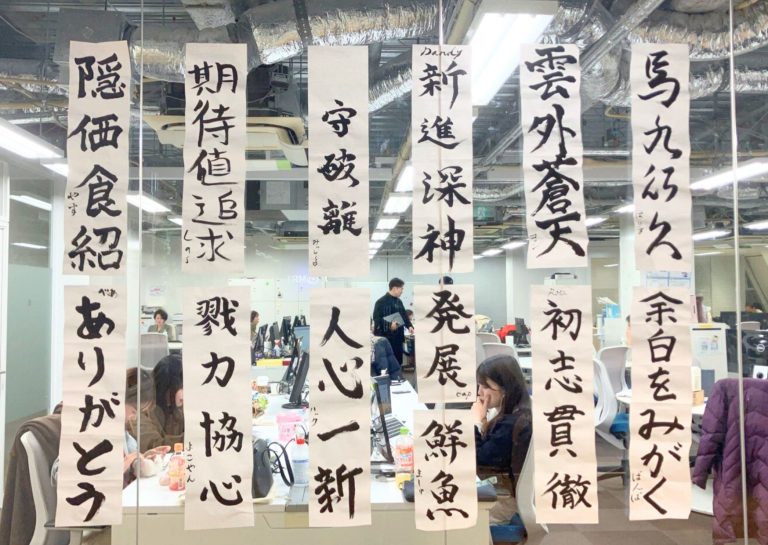 馬九行久
雲外蒼天
Dandy
新進深神
守破離
期待値追求
隠価食紹
やす
余白をみがく
ばんば
初志貫徹
・発展
鮮魚
人心一新
戮力協心
よこやん
ありがとう